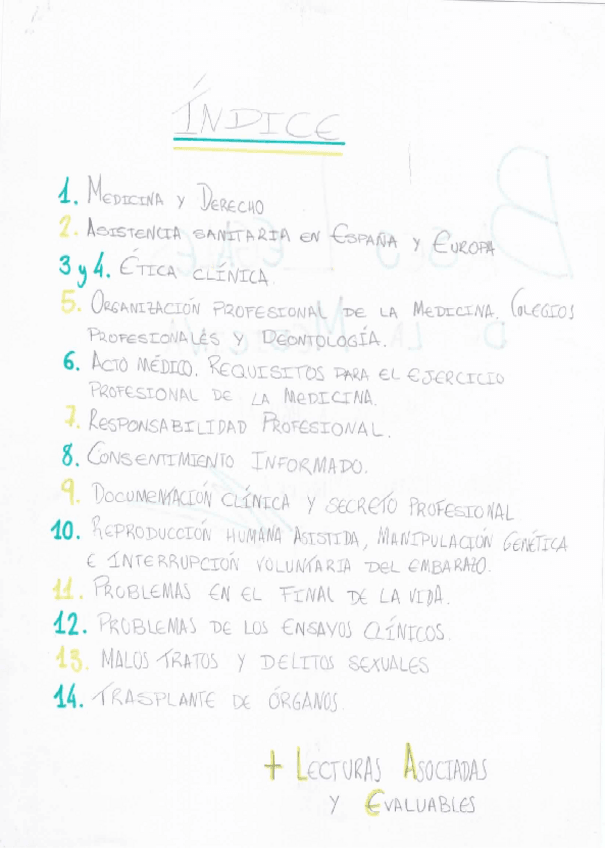 ÍNDICE
1. MEDICINA Y DERECHO
2. ASISTENCIA SANITARIA EN ESPAÑA Y EUROPA
3 y 4. ÉTICA CLÍNICA.
5. ORGANIZACIÓN PROFESIONAL DE LA MEDICINA. COLEGIOS
PROFESIONALES Y DEONTOLOGÍA.
6. ACTO MÉDICO. REQUISITOS PARA EL EJERCICIO
PROFESIONAL DE LA MEDICINA.
7. RESPONSABILIDAD PROFESIONAL.
8. CONSENTIMIENTO INFORMADO.
9. DOCUMENTACIÓN CLÍNICA Y SECRETO PROFESIONAL
10. REPRODUCCIÓN HUMANA ASISTIDA, MANIPULACIÓN GENÉTICA
E INTERRUPCIÓN VOLUNTARIA DEL EMBARAZO.
11. PROBLEMAS EN EL FINAL DE LA VIDA.
12. PROBLEMAS DE LOS ENSAYOS CLÍNICOS.
13. MALOS TRATOS Y DELITOS SEXUALES
14. TRASPLANTE DE ÓRGANOS.
+ LECTURAS ASOCIADAS
Y EVALUABLES